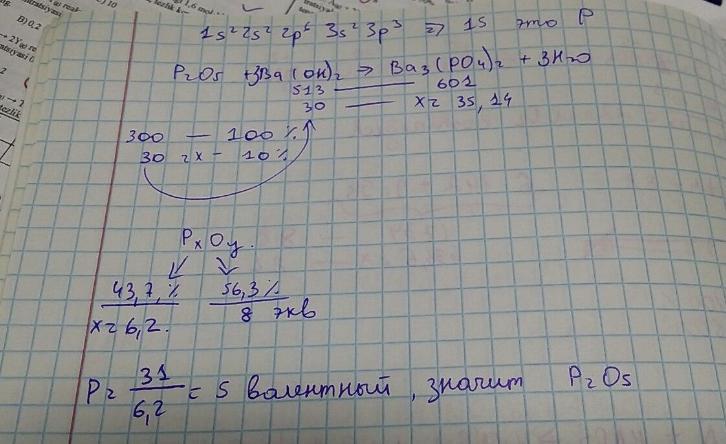 1s² 2s² 2p⁶ 3s² 3p³ => 15 это P
P₂O₅ + 3Ba(OH)₂ => Ba₃(PO₄)₂ + 3H₂O
513 — 601
30 — x = 35,14
300 — 100%
30 = x - 10%
PxOy.
43,7% 56,3%
x = 6,2. 8 экв
P = 31 / 6,2 = 5 валентный, значит P₂O₅